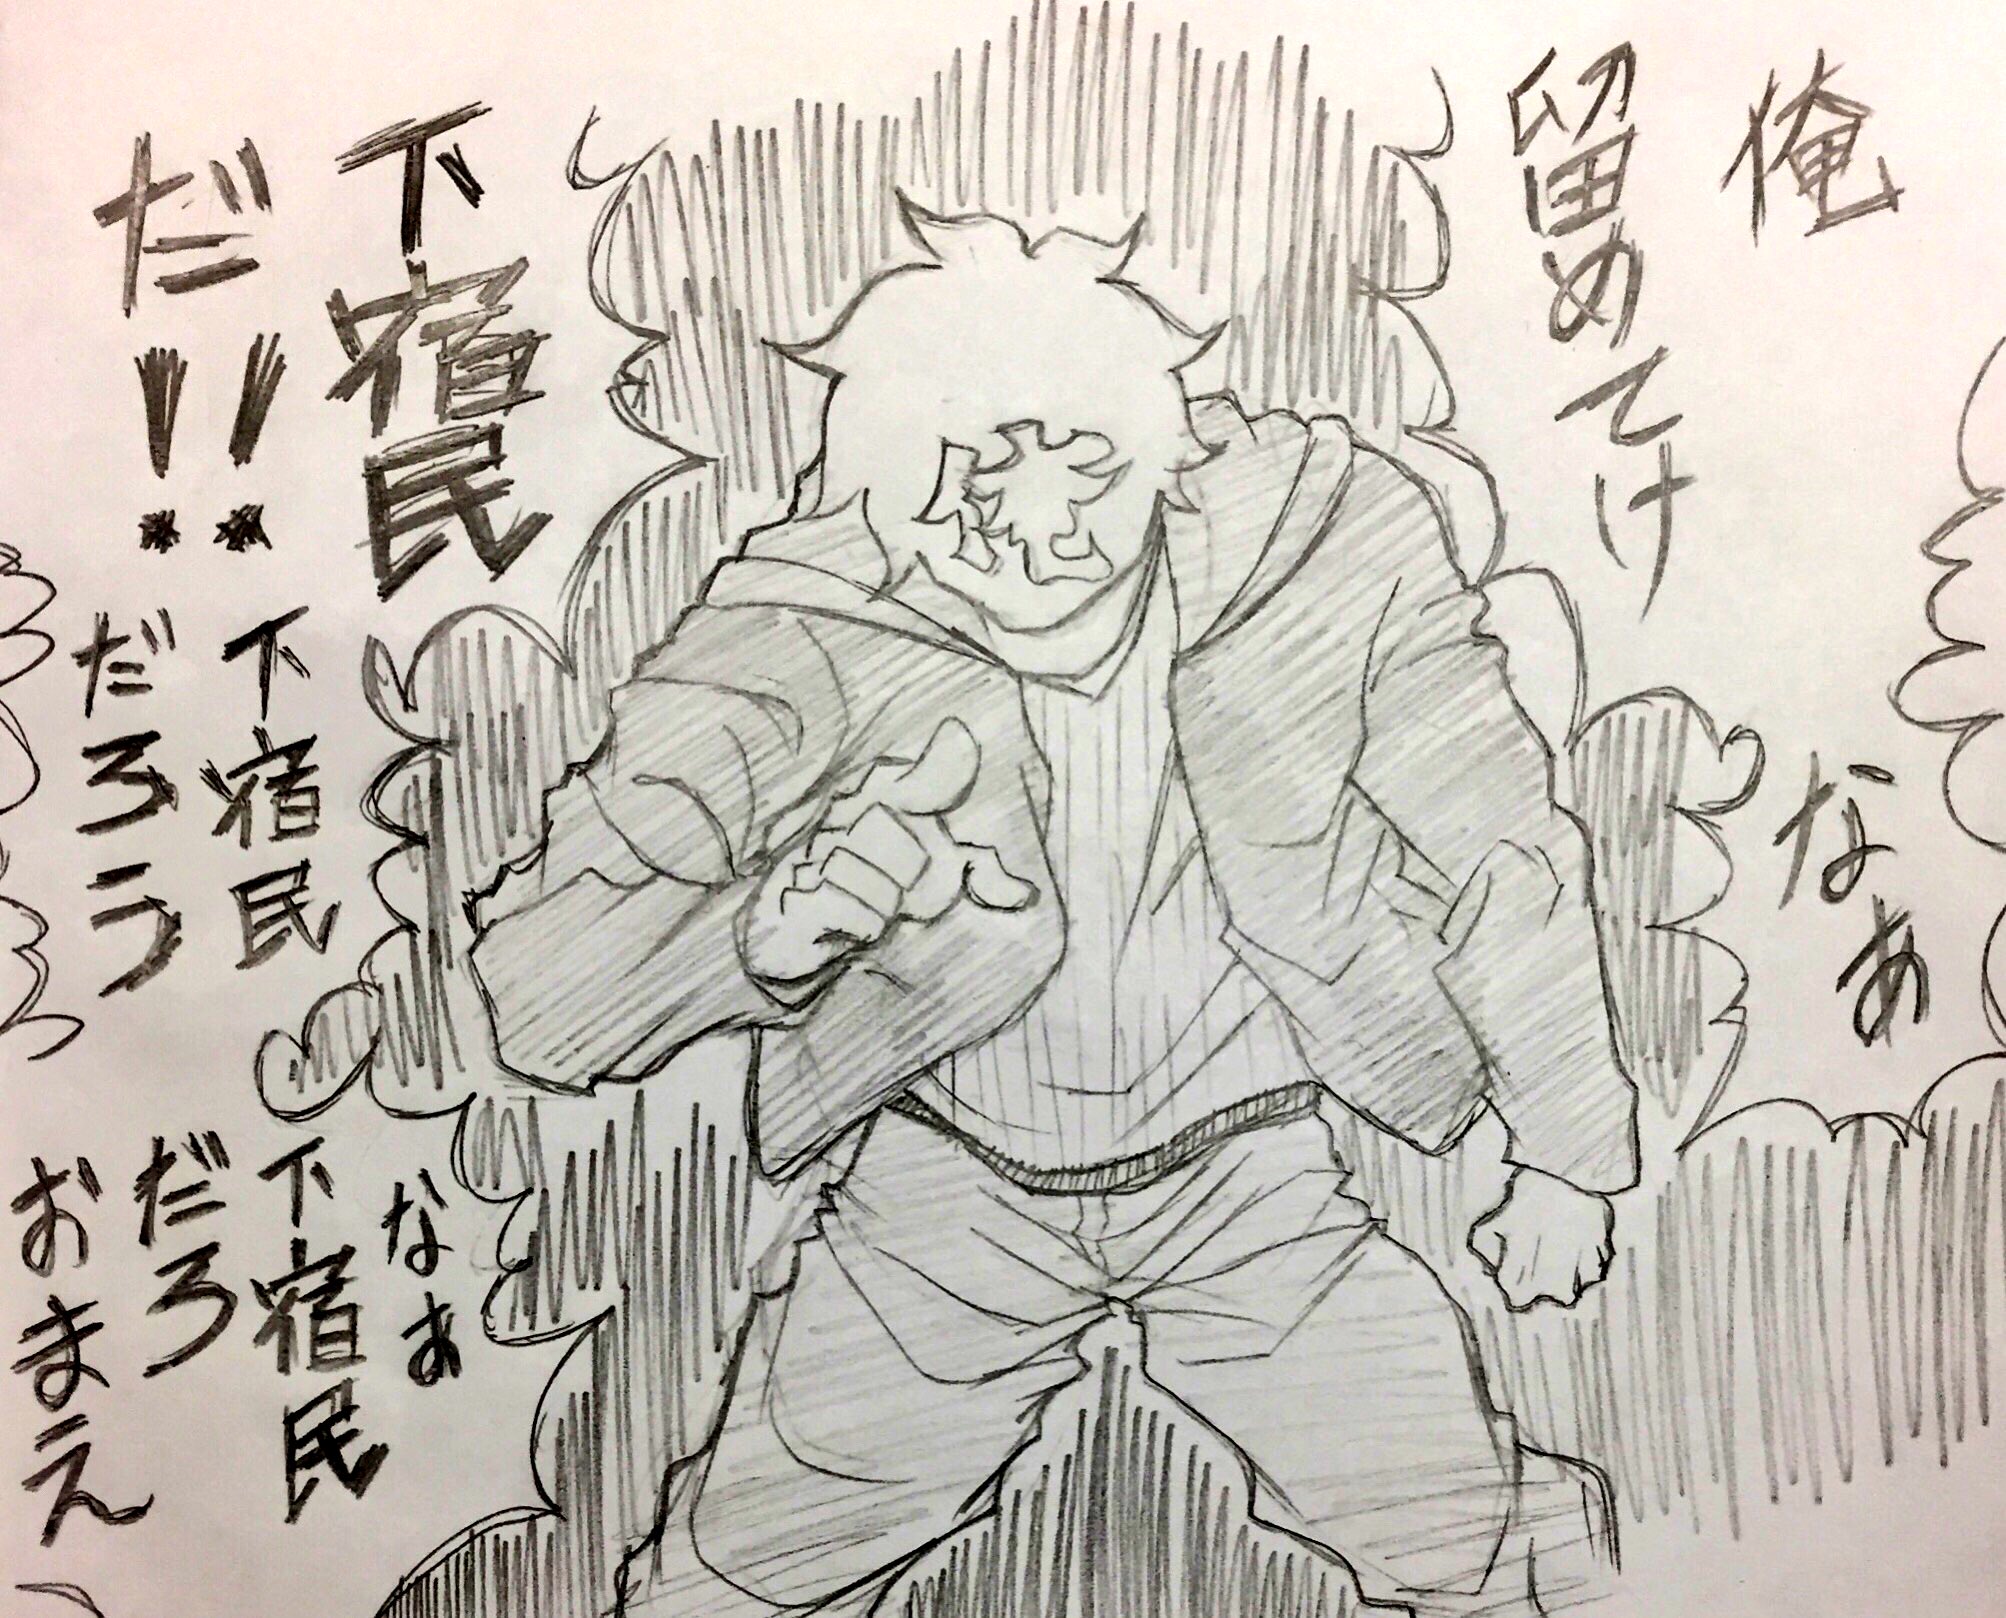 俺
留めてけ
なぁ
下宿民
だ!!
下宿民
だろう
なぁ
下宿民
だろ
おまえ